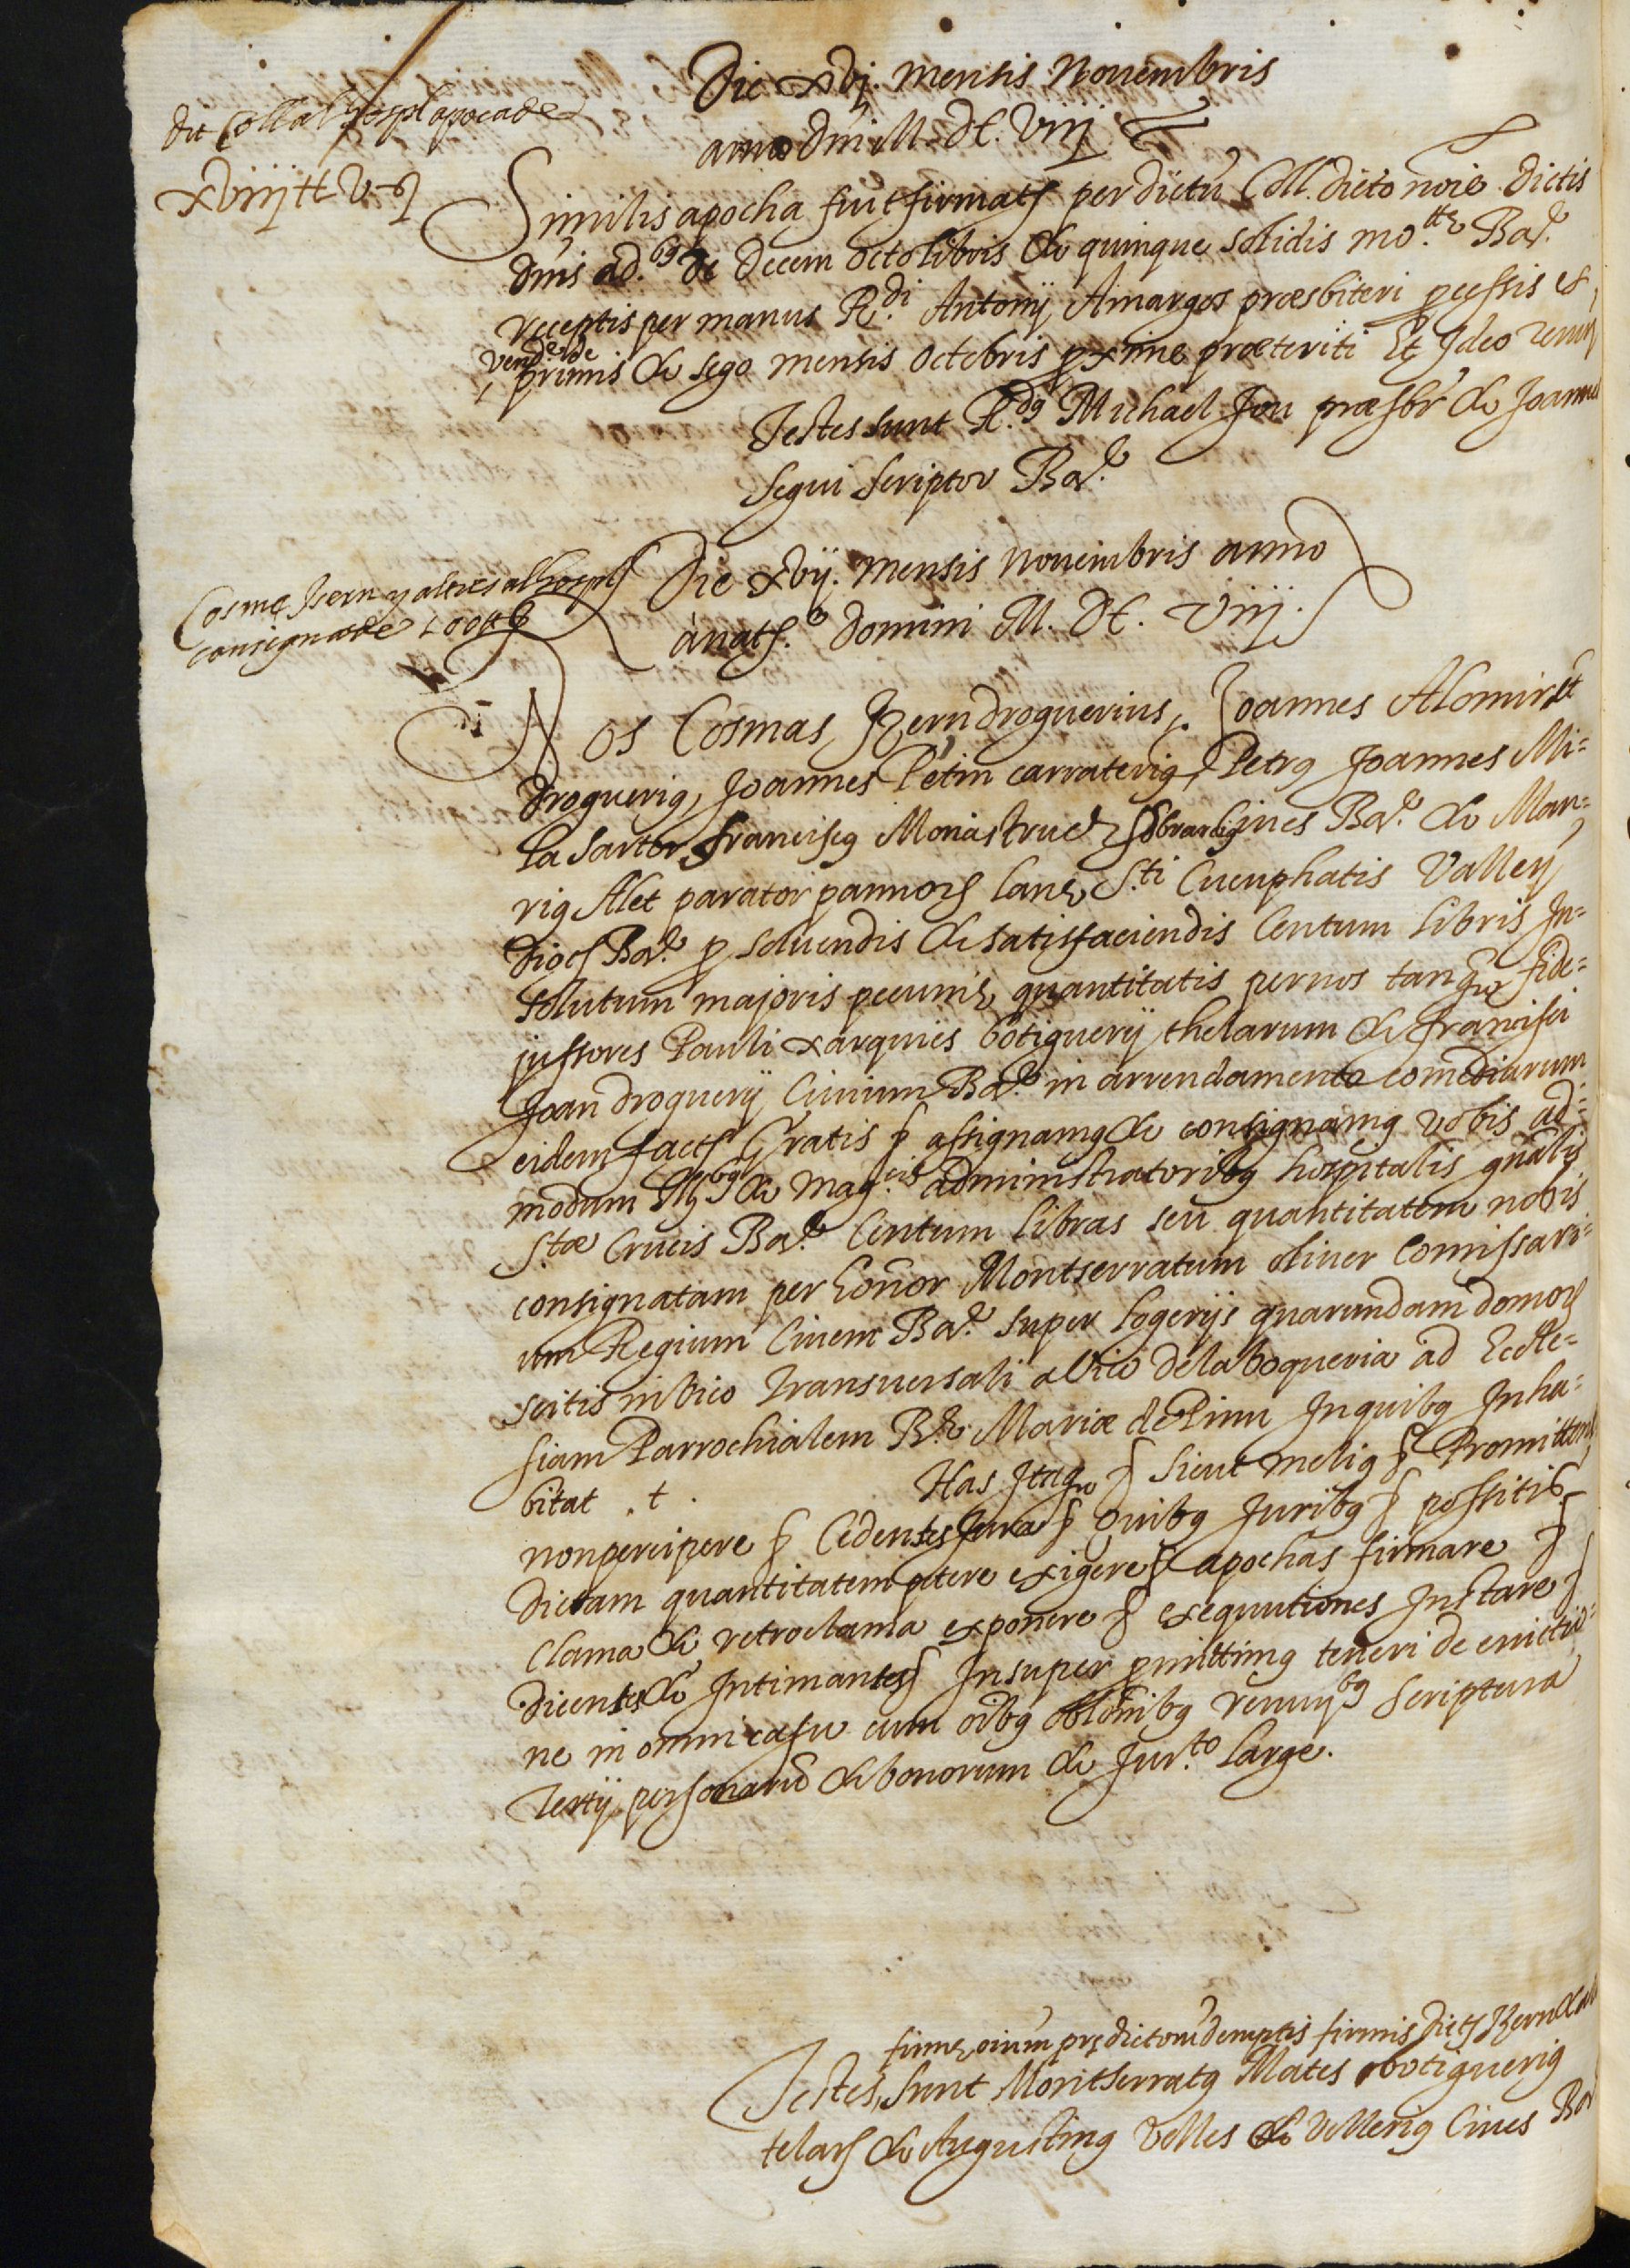 Die xvj. mensis Nouembris
anno Dni M. DC. Viiij
dit Coll al hospl apoca de
xviiij tt v s
Similis apocha fuit firmata per dictu Coll. dicto noie dictis
dnis ad.bus de decem octo libris & quinque solidis mo.te Bar.e
receptis per manus R.di Antonij Amargos præsbiteri pcessis ex
vend.e de
primis & sego mensis octobris pxime præteriti Et Ideo renun
Testes sunt R.dus Michael Jou præsbr & Joannes
Segui scriptor Bar.e
Cosme Isern y altres al hospl
consigna de 100 tt s
Die xvij. mensis nouembris anno
a nat.e domini M. DC. Viiij.
Nos Cosmas Isern droguerius, Joannes Alomir et
droguerius, Joannes Petin carraterius, Petrus Joannes Mi=
la sartor, franciscus Monastruch librarius Ciues Bar.e & Mar=
rius Alet parator pannorum lane, S.ti Cucuphatis Vallen
dioc Bar.e p soluendis & satisfaciendis Centum libris In=
solutum majoris pecunie, quantitatis per nos tanq fide=
jussores Pauli xarquies botiguerij thelarum & francisci
Joan droguerij Ciuium Bar.e in arrendamento comediarum
eidem fact Gratis § assignamus & consignamus vobis ad=
modum Ill.bus & mag.cis administratoribus hospitalis gnalis
S.tæ Crucis Bar.e Centum libras seu quantitatem nobis
consignatam per honor Montserratum oliuer Comissari=
um Regium Ciuem Bar.e super logerijs quarundam domorum
scitis in vico transuersali a vico dela boqueria ad Eccle=
siam Parrochialem B.e Mariæ de Pinu In quibus Inha=
bitat . t . Has Itaq § sicut melius § Promittens
non percipere § Cedentes Jura § Quibus Juribus § possitis
dictam quantitatem petere exigere § apochas firmare §
Clama & retroclama exponere § exequutiones Instare §
dicentes & Intimantes § Insuper pmittimus teneri de euictio=
ne in omni casu cum oibus oblonibus renun.bus scriptura
tertij personarum & bonorum & Jur.to large.
firme, oium predictorum demptis firmis dict Isern &
Testes, sunt Montserratus Mates botiguerius
telar & Augustinus Velles & Vellerius Ciues Bar